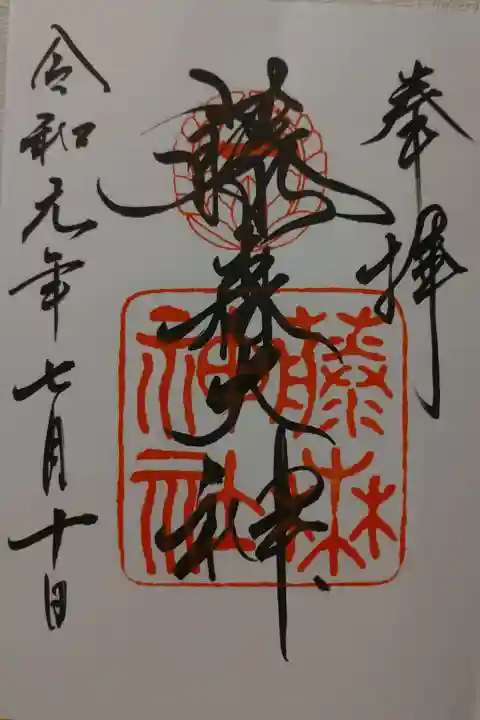 奉拝
藤森大神
藤森
神社
令和元年七月十日